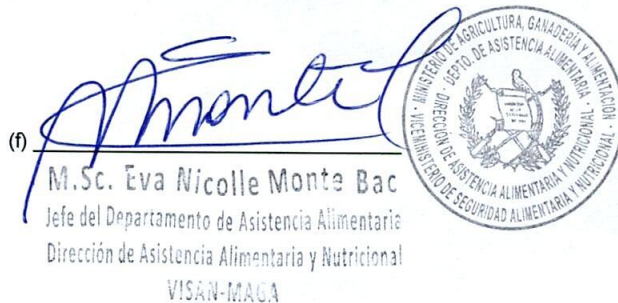 (f)
M.Sc. Eva Nicolle Monte Bac
Jefe del Departamento de Asistencia Alimentaria
Dirección de Asistencia Alimentaria y Nutricional
VISAN-MAGA
MINISTERIO DE AGRICULTURA, GANADERÍA Y ALIMENTACIÓN
VICEMINISTERIO DE SEGURIDAD ALIMENTARIA Y NUTRICIONAL
DEPTO. DE ASISTENCIA ALIMENTARIA
DIRECCIÓN DE ASISTENCIA ALIMENTARIA Y NUTRICIONAL